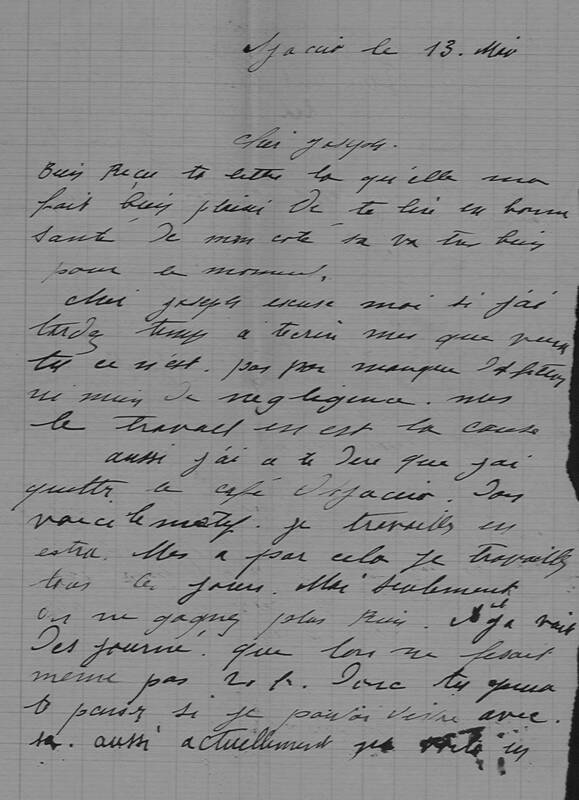 Ajaccio le 13. Mai
Cher Joseph.
Bien Recu ta lettre la qu'elle ma
fait bien plaisi de te lire en bonne
santé de mon coté sa va tres bien
pour le moment,
cher joseph excuse moi si j'ai
tardez temps a tecrire mes que veux
tu ce n'est. pas par manque
ni mein de negligence. mes
le travail en est la cause
aussi j'ai a te dire que j'ai
quetter le café d'Ajaccio. dons
voici le motif. je travailles en
extra. Mes a par cela je travailles
tous les jours. Mai seulement
on ne gagnez plus Rien. il y a vait
Des journé. que lon ne fesait
meme pas 20 f. Donc tu
a pensez si je pouvai vivre avec.
sa. aussi actuellement